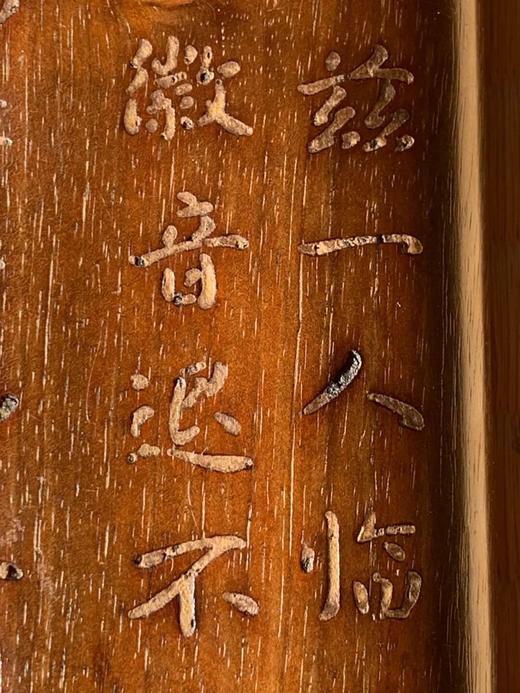 兹一人临
徽音退不